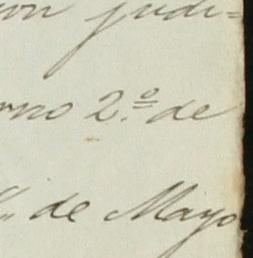 ion judi=
rno 2.º de
de Mayo